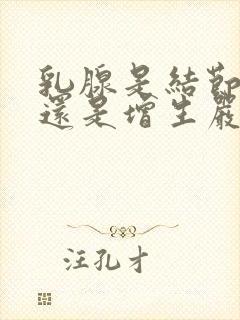 乳腺是結節
還是增生嚴
汪孔才